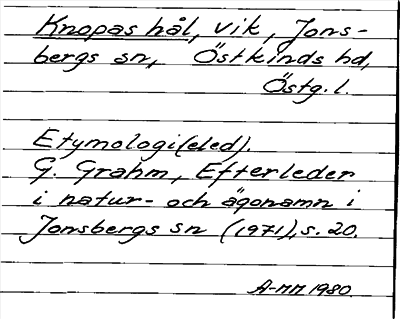 Knopas hål, vik, Jons-
bergs sn, Östkinds hd,
Östg. l.
Etymologi(eled).
G. Grahm, Efterleder
i natur- och ägonamn i
Jonsbergs sn (1971), s. 20.
A-MM 1980